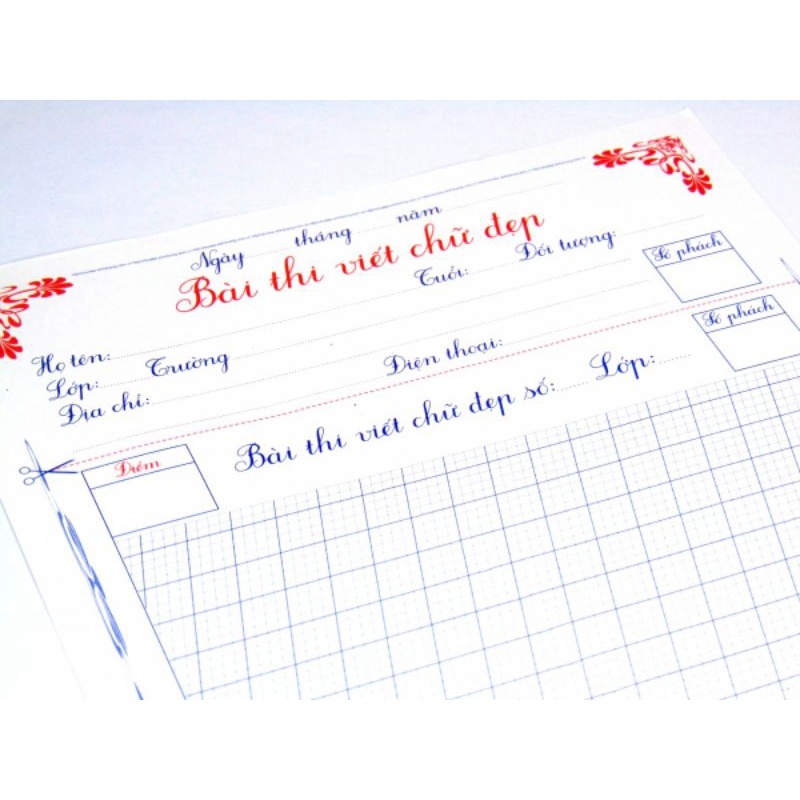 Ngày tháng năm
Bài thi viết chữ đẹp
Họ tên: Tuổi: Đối tượng: Số phách
Lớp: Trường
Địa chỉ: Điện thoại: Số phách
Điểm Bài thi viết chữ đẹp số: Lớp: